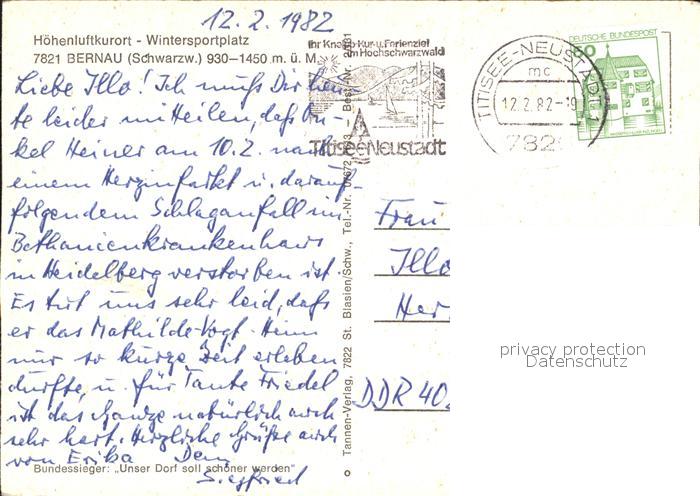 12.2.1982
Höhenluftkurort - Wintersportplatz
7821 BERNAU (Schwarzw.) 930–1450 m. ü. M.
Liebe Illo! Ich muß Dir heu-
te leider mitteilen, daß On-
kel Heiner am 10.2. nach
einem Herzinfarkt u. darauf-
folgendem Schlaganfall im
Bethanienkrankenhaus
in Heidelberg verstorben ist.
Es tut uns sehr leid, daß
er das Mathilde-Vogt-Heim
nur so kurze Zeit erleben
durfte, u. für Tante Friedel
ist das Ganze natürlich auch
sehr hart. Herzliche Grüße auch
von Erika Dein
Siegfried
Bundessieger: „Unser Dorf soll schöner werden"
Tannen-Verlag, 7822 St. Blasien/Schw., Tel.-Nr. 07672
Best.-Nr.
Ihr Kneipp-Kur-u. Ferienziel
im Hochschwarzwald
Titisee Neustadt
TITISEE-NEUSTADT 1
mc
12.2.82-19
782
DEUTSCHE BUNDESPOST
50
Frau
Illo
Her
DDR 40
privacy protection
Datenschutz